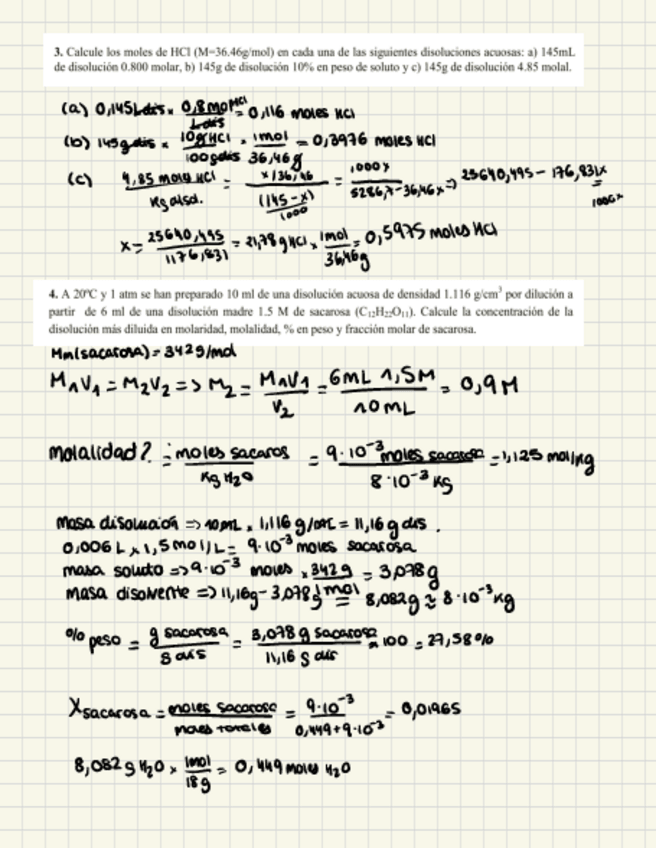 3. Calcule los moles de HCl (M=36.46g/mol) en cada una de las siguientes disoluciones acuosas: a) 145mL
de disolución 0.800 molar, b) 145g de disolución 10% en peso de soluto y c) 145g de disolución 4.85 molal.
(a) 0,145 L dis × 0,8 mol HCl / L dis = 0,116 moles HCl
(b) 145 g dis × 10 g HCl / 100 g dis × 1 mol / 36,46 g = 0,3976 moles HCl
(c) 4,85 moles HCl / Kg disol. = x/36,46 / (145-x)/1000 = 1000x / 5286,7-36,46x => 25640,495 - 176,831x = 1000x
x = 25640,495 / 1176,831 = 21,78 g HCl × 1 mol / 36,46 g = 0,5975 moles HCl
4. A 20ºC y 1 atm se han preparado 10 ml de una disolución acuosa de densidad 1.116 g/cm³ por dilución a
partir de 6 ml de una disolución madre 1.5 M de sacarosa (C₁₂H₂₂O₁₁). Calcule la concentración de la
disolución más diluida en molaridad, molalidad, % en peso y fracción molar de sacarosa.
Mm(sacarosa) = 342 g/mol
M₁V₁ = M₂V₂ => M₂ = M₁V₁ / V₂ = 6mL 1,5M / 10 mL = 0,9 M
Molalidad? = moles sacaros / Kg H₂O = 9·10⁻³ moles sacarosa / 8·10⁻³ Kg = 1,125 mol/kg
masa disolución => 10mL × 1,116 g/mL = 11,16 g dis.
0,006 L × 1,5 mol/L = 9·10⁻³ moles sacarosa
masa soluto => 9·10⁻³ moles × 342 g / 1 mol = 3,078 g
masa disolvente => 11,16g - 3,078g = 8,082g ≈ 8·10⁻³ Kg
% peso = g sacarosa / g dis = 3,078 g sacarosa / 11,16 g dis × 100 = 27,58%
X sacarosa = moles sacarosa / moles totales = 9·10⁻³ / 0,449 + 9·10⁻³ = 0,01965
8,082 g H₂O × 1 mol / 18 g = 0,449 moles H₂O